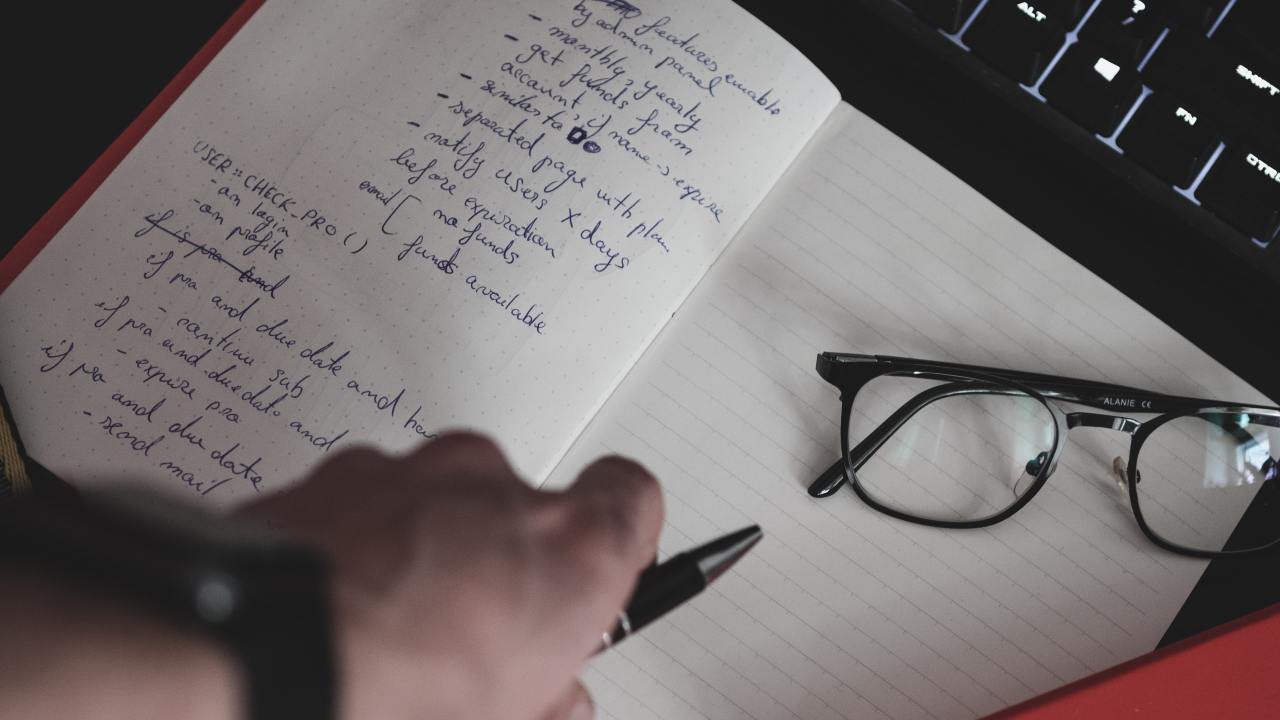 features enable
by admin panel
- monthly, yearly
- get funds from
account, if name -> expire
- similar to
- separated page with plan.
- notify users X days
before expiration
email [ no funds
funds available
USER::CHECK_PRO()
- on login
- on profile
if is pro and
if pro and due date and
- continue sub
if pro and due date and
- expire pro
if pro and due date
- send mail
ALT
?
SHIFT
FN
CTRL
ALANIE CE